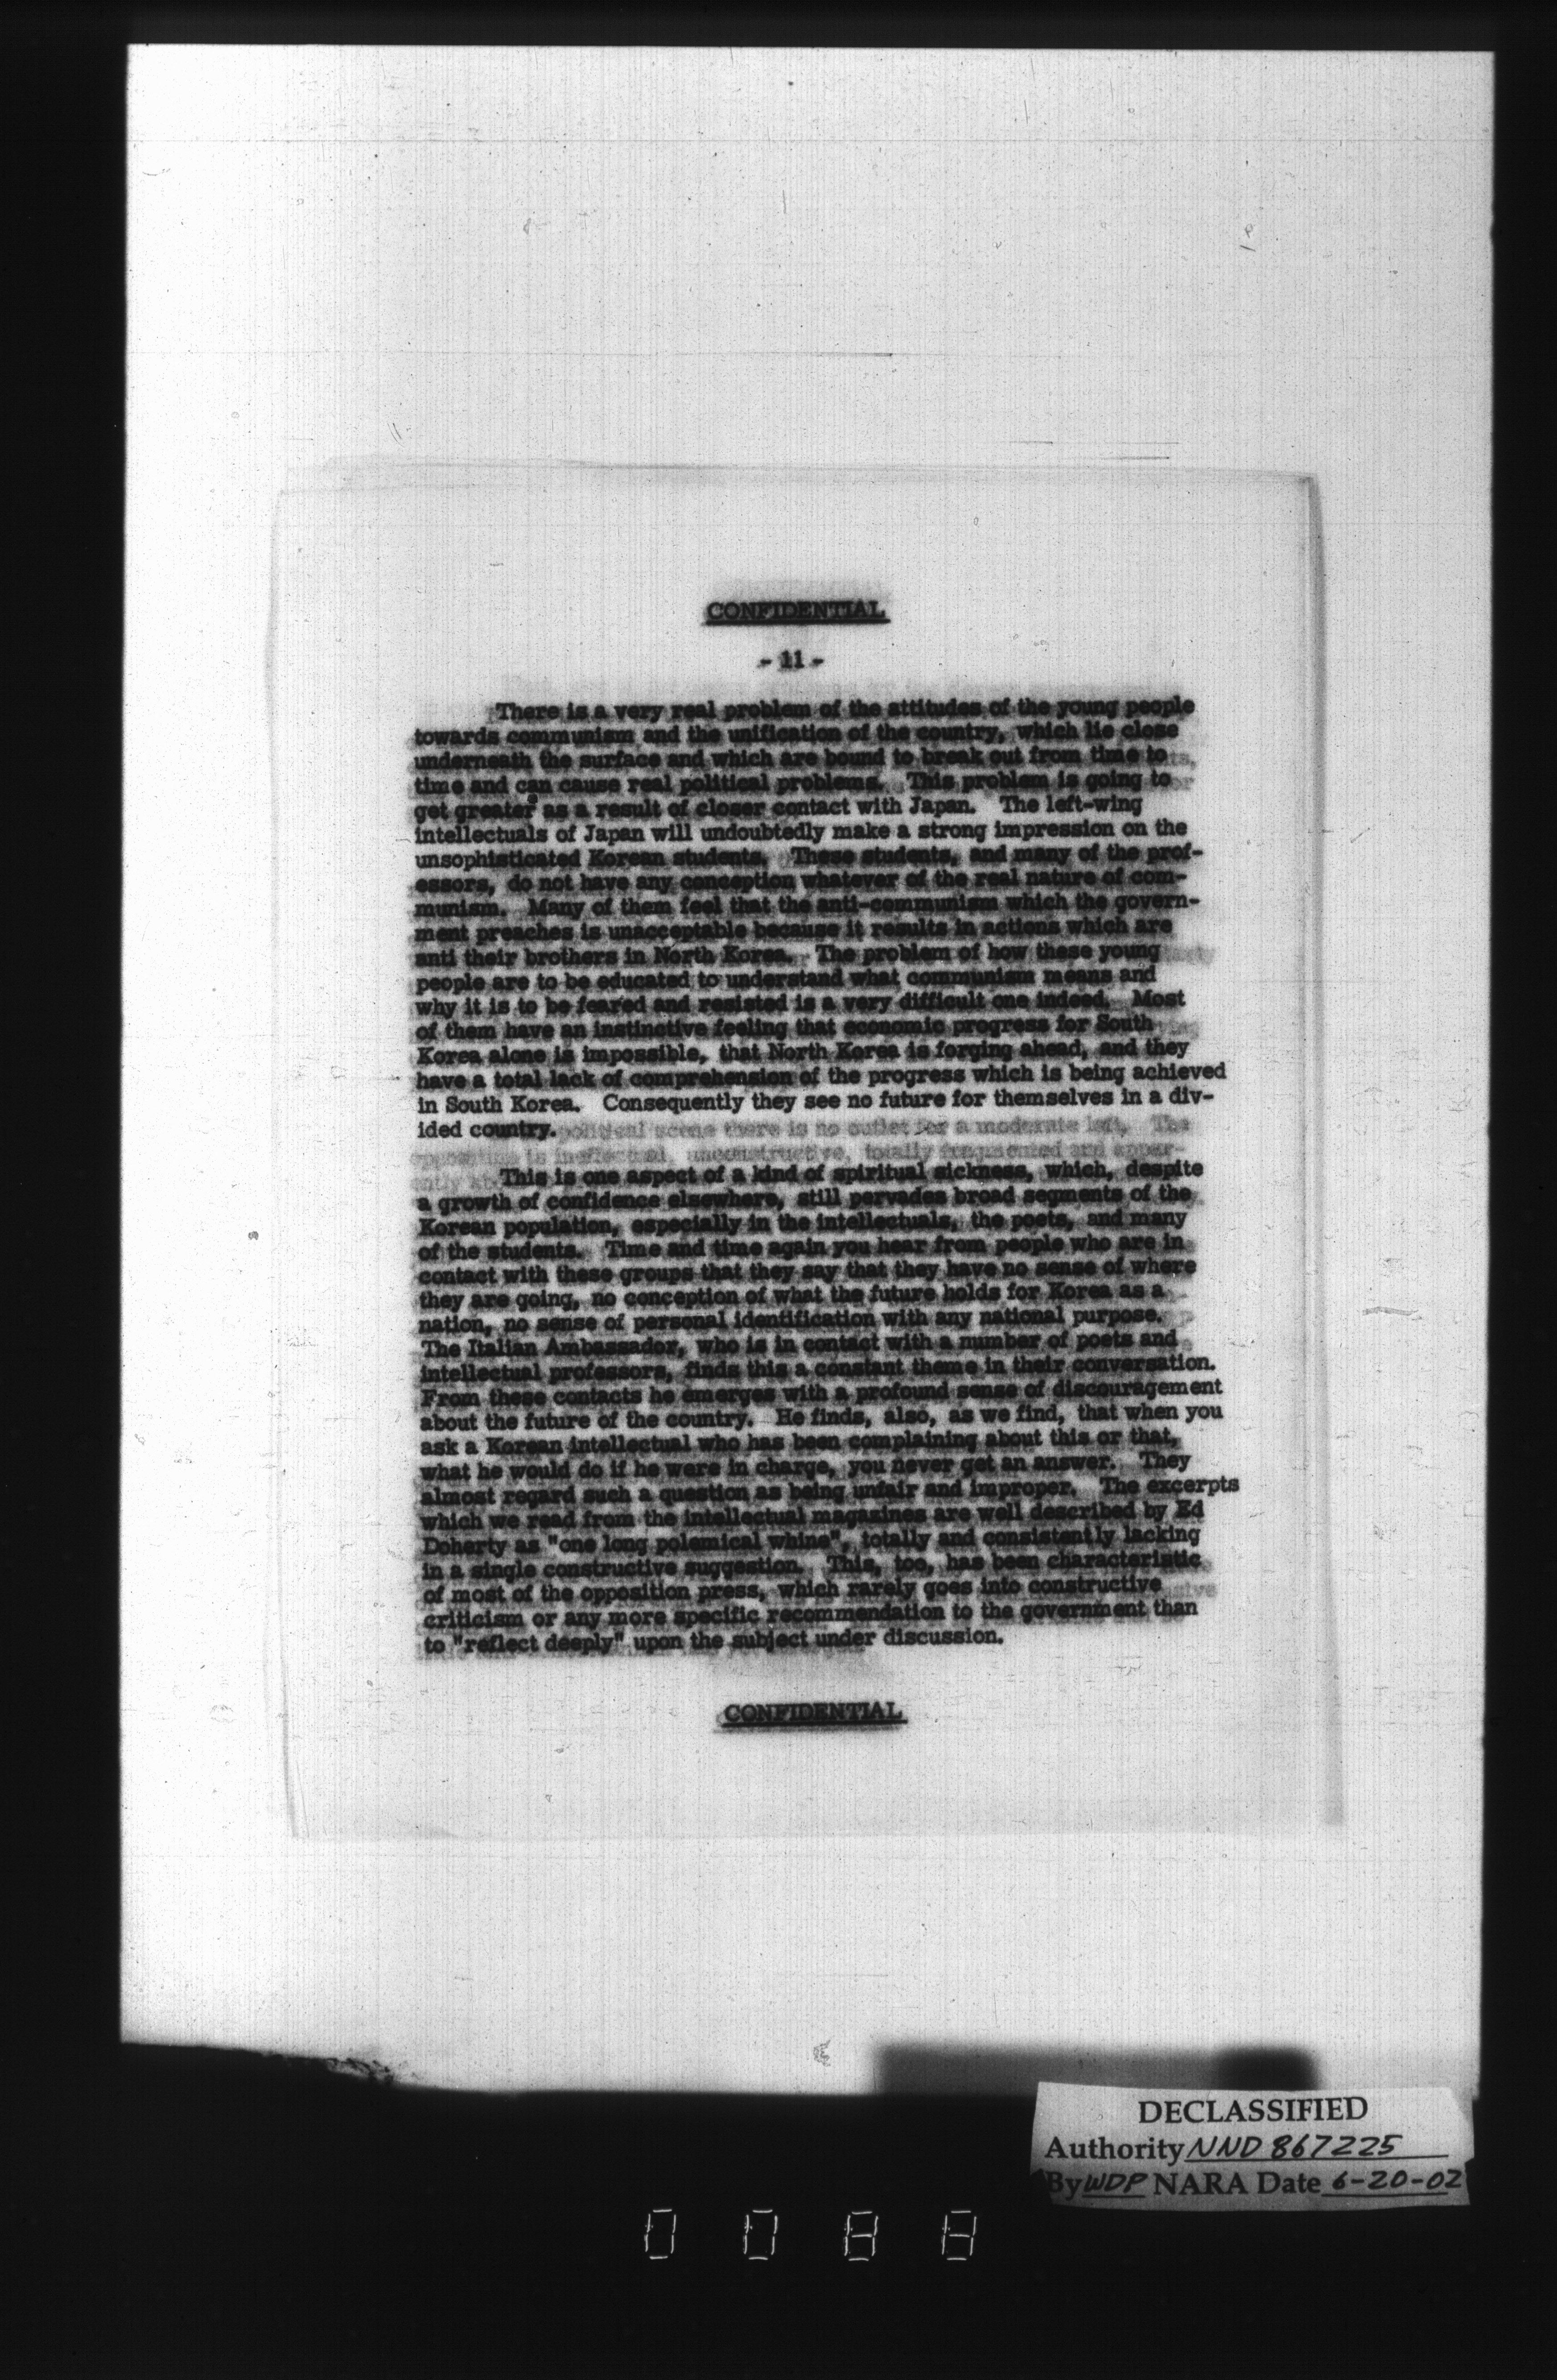 CONFIDENTIAL
- 11 -
There is a very real problem of the attitudes of the young people
towards communism and the unification of the country, which lie close
underneath the surface and which are bound to break out from time to
time and can cause real political problems. This problem is going to
get greater as a result of closer contact with Japan. The left-wing
intellectuals of Japan will undoubtedly make a strong impression on the
unsophisticated Korean students. These students, and many of the prof-
essors, do not have any conception whatever of the real nature of com-
munism. Many of them feel that the anti-communism which the govern-
ment preaches is unacceptable because it results in actions which are
anti their brothers in North Korea. The problem of how these young
people are to be educated to understand what communism means and
why it is to be feared and resisted is a very difficult one indeed. Most
of them have an instinctive feeling that economic progress for South
Korea alone is impossible, that North Korea is forging ahead, and they
have a total lack of comprehension of the progress which is being achieved
in South Korea. Consequently they see no future for themselves in a div-
ided country.
political scene there is no outlet for a moderate left. The
opposition is ineffectual, unconstructive, totally fragmented and appar-
This is one aspect of a kind of spiritual sickness, which, despite
a growth of confidence elsewhere, still pervades broad segments of the
Korean population, especially in the intellectuals, the poets, and many
of the students. Time and time again you hear from people who are in
contact with these groups that they say that they have no sense of where
they are going, no conception of what the future holds for Korea as a
nation, no sense of personal identification with any national purpose.
The Italian Ambassador, who is in contact with a number of poets and
intellectual professors, finds this a constant theme in their conversation.
From these contacts he emerges with a profound sense of discouragement
about the future of the country. He finds, also, as we find, that when you
ask a Korean intellectual who has been complaining about this or that,
what he would do if he were in charge, you never get an answer. They
almost regard such a question as being unfair and improper. The excerpts
which we read from the intellectual magazines are well described by Ed
Doherty as "one long polemical whine", totally and consistently lacking
in a single constructive suggestion. This, too, has been characteristic
of most of the opposition press, which rarely goes into constructive
criticism or any more specific recommendation to the government than
to "reflect deeply" upon the subject under discussion.
CONFIDENTIAL
DECLASSIFIED
Authority NND 867225
By WDP NARA Date 6-20-02
0 0 8 8